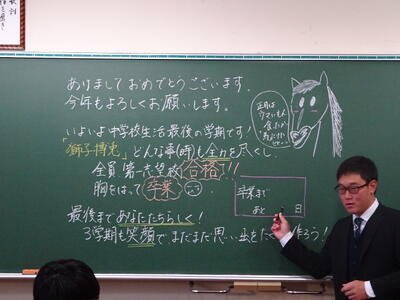 あけましておめでとうございます。
今年もよろしくお願いします。
いよいよ中学校生活最後の学期です!
「獅子搏兎」どんな事(時)も全力を尽くし、
全員第一志望校合格!!!
胸をはって卒業
最後まであなたたちらしく!
3学期も笑顔で、まだまだ思い出をたくさん作ろう!
正月は
ウマいもん
食ったか
卒業まで
あと 日